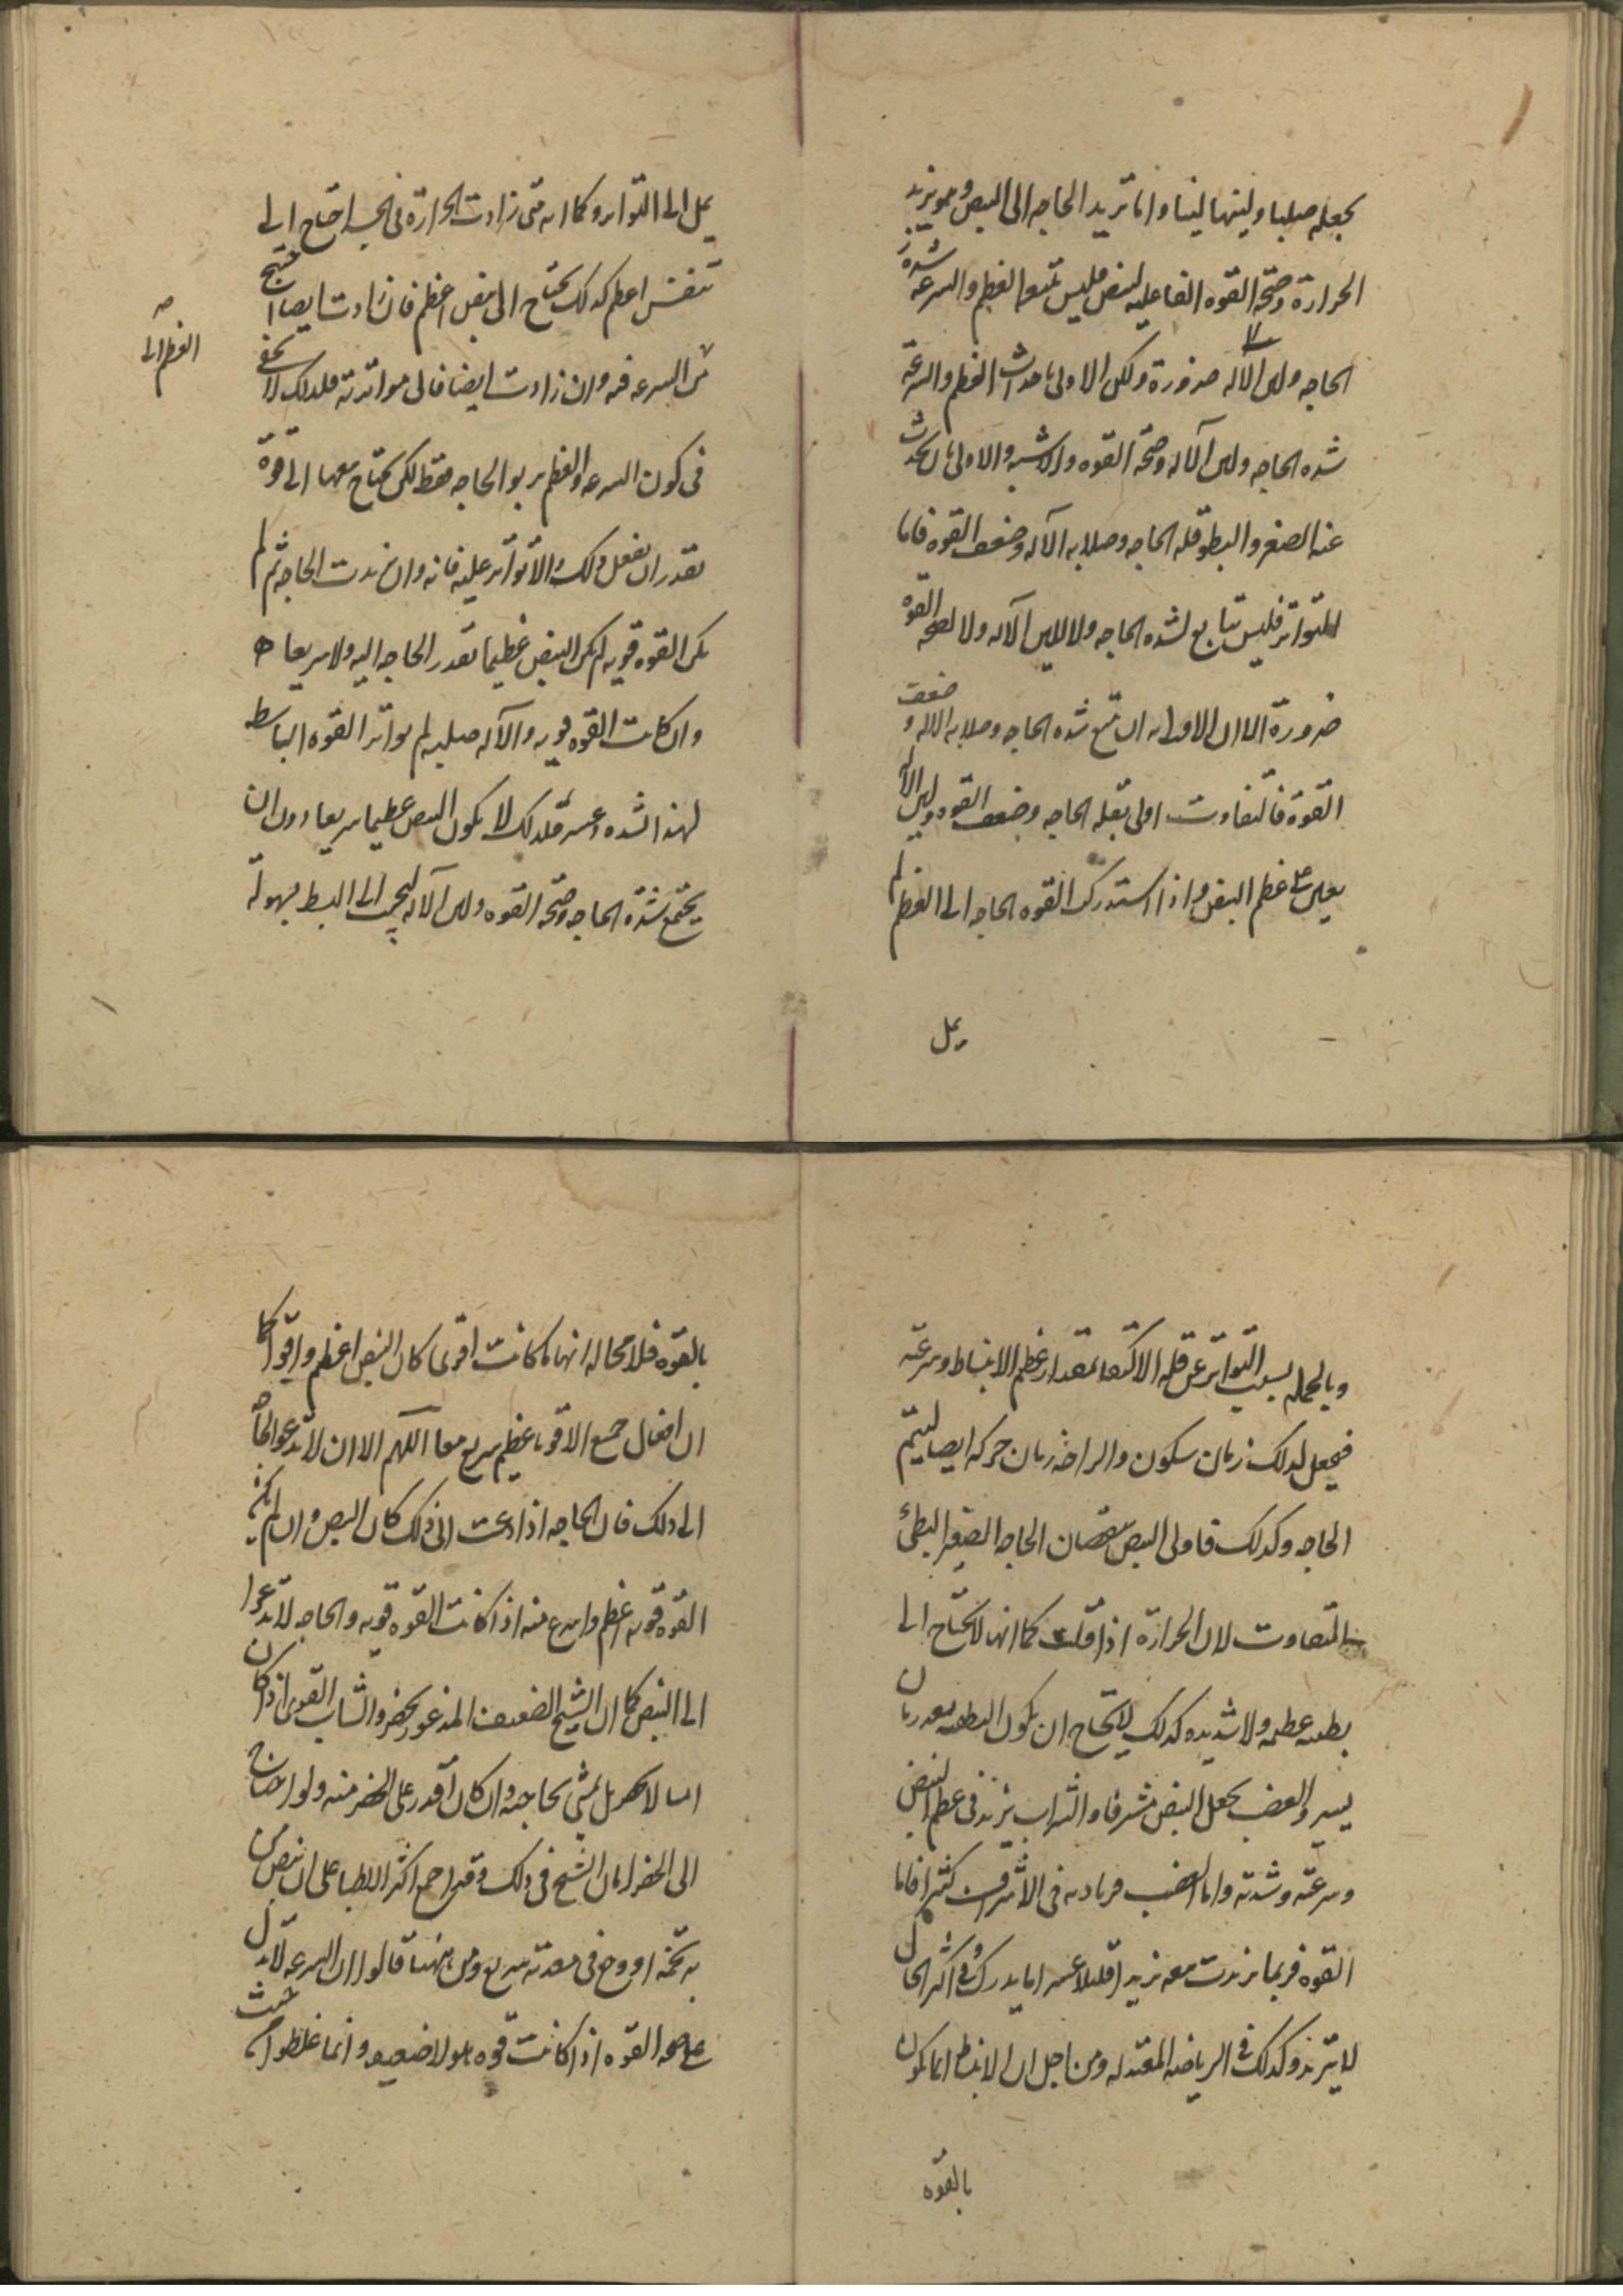 يجعله صلبا ولينها لينا وانما تريد الحاجه الى النبض وهو تزيد
الحرارة وصحة القوه الفاعليه لنبض فليس تتبع العظم والسرعه شدة
الحاجه ولين الآله ضرورة ولكن الاولى باحداث العظم والسرعة
شده الحاجه ولين الآله وصحة القوه والاولى بان يحدث
عنه الصغر والبطو قله الحاجه وصلابه الآله وضعف القوه فاما
المتواتر فليس بتابع لشده الحاجه ولا للين الآله ولا لصحة القوه
ضرورة الا ان الاولى به ان تتبع شده الحاجه وصلابه الاله وضعف
القوة فالتفاوت اولى بقله الحاجه وضعف القوه ولين الآله
يعين على عظم النبض واذا استدركت القوه الحاجه الى العظم لم
يمل
يمل الى التواتر وكما انه متى زادت الحرارة فى الجسد احتاج الى
تنفس اعظم كذلك يحتاج الى نبض اعظم فان زادت ايضا احتيج
من السرعه فيه وان زادت ايضا فالى مواترته فلذلك لا
العظم الى
فى كون السرعه والعظم بر بو الحاجه فقط لكن يحتاج معها الى قوة
تقدر ان تفعل ذلك والا تواتر عليه فانه وان تزيدت الحاجه ثم لم
يكن القوه قويه لم يكن النبض عظيما بقدر الحاجه اليه ولا سريعا
وان كانت القوه قويه والآله صلبه لم تواتر القوه الباسطه
لهذا الشده وعسر فلذلك لا يكون النبض عظيما سريعا دون ان
يجتمع شدة الحاجه وصحة القوه ولين الآله ليجب الى البسط بسهولة
وبالجمله بسبب التواتر عن قله الاكتفا بمقدار عظم الانبساط وسرعته
فيجعل لذلك زمان سكون والراحه زمان حركه ايضا ليتم
الحاجه وكذلك فاولى النبض بنقصان الحاجه الصغير البطئ
المتفاوت لان الحرارة اذا قلت كما انها لا تحتاج الى
عظمه ولا شديده كذلك لا يحتاج ان يكون
يسير والغضب يجعل النبض مشرفا والشراب يزيد فى عظم النبض
وسرعته وشدته واما الغضب فزيادته فى الاشراف كثيرا فاما
القوه فربما تزيدت معه تزيدا قليلا عسرا ما يدرك وفى اكثر الحال
لا يتزيد وكذلك فى الرياضه المعتدله ومن اجل ان الانبساط انما يكون
بالقوه
بالقوه فلا محاله انها ما كانت اقوى كان النبض اعظم واقوا كما
ان افعال جميع الاقويا عظيم سريع معا اللهم الا ان لا تدعو الحاجه
الى ذلك فان الحاجه اذا دعت الى ذلك كان النبض وان لم يكن
القوه قويه اعظم واسرع منه اذا كانت القوه قويه والحاجه لا تدعوا
الى النبض كما ان الشيخ الضعيف المذعور يحضر والشاب القوى اذا كان
امنا لا يحضر بل يمشى بحاجته وان كان اقدر على الحضر منه ولو احتاج
الى الحضر لبان الشيخ فى ذلك وقد اجمع اكثر الاطبا على ان نبض من
به تخمه او وجع فى معدته سريع ومن ههنا قالوا ان السرعه لا تدل
على صحه القوه اذا كانت قوه هولا ضعيفه وانما غلطوا من حيث